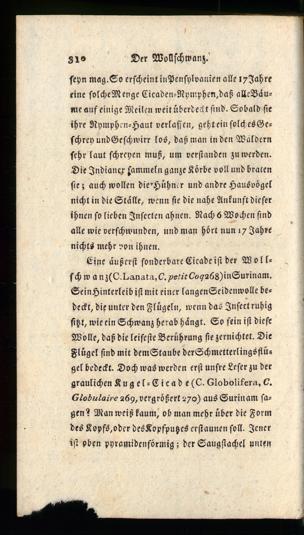 310 Der Wollschwanz.
seyn mag. So erscheint in Pensylvanien alle 17 Jahre
eine solche Menge Cicaden-Nymphen, daß alle Bäu-
me auf einige Meilen weit überdeckt sind. Sobald sie
ihre Nymphen-Haut verlassen, geht ein solches Ge-
schrey und Geschwirr los, daß man in den Wäldern
sehr laut schreyen muß, um verstanden zu werden.
Die Indianer sammeln ganze Körbe voll und braten
sie; auch wollen die Hühner und andre Hausvögel
nicht in die Ställe, wenn sie die nahe Ankunft dieser
ihnen so lieben Insecten ahnen. Nach 6 Wochen sind
alle wie verschwunden, und man hört nun 17 Jahre
nichts mehr von ihnen.
Eine äußerst sonderbare Cicade ist der Woll-
schwanz (C. Lanata, C. petit Coq 268) in Surinam.
Sein Hinterleib ist mit einer langen Seidenwolle be-
deckt, die unter den Flügeln, wenn das Insect ruhig
sitzt, wie ein Schwanz herab hängt. So fein ist diese
Wolle, daß die leiseste Berührung sie zernichtet. Die
Flügel sind mit dem Staube der Schmetterlingsflü-
gel bedeckt. Doch was werden erst unsre Leser zu der
graulichen Kugel-Cicade (C. Globolifera, C.
Globulaire 269, vergrößert 270) aus Surinam sa-
gen? Man weiß kaum, ob man mehr über die Form
des Kopfs, oder des Kopfputzes erstaunen soll. Jener
ist oben pyramidenförmig; der Saugstachel unten